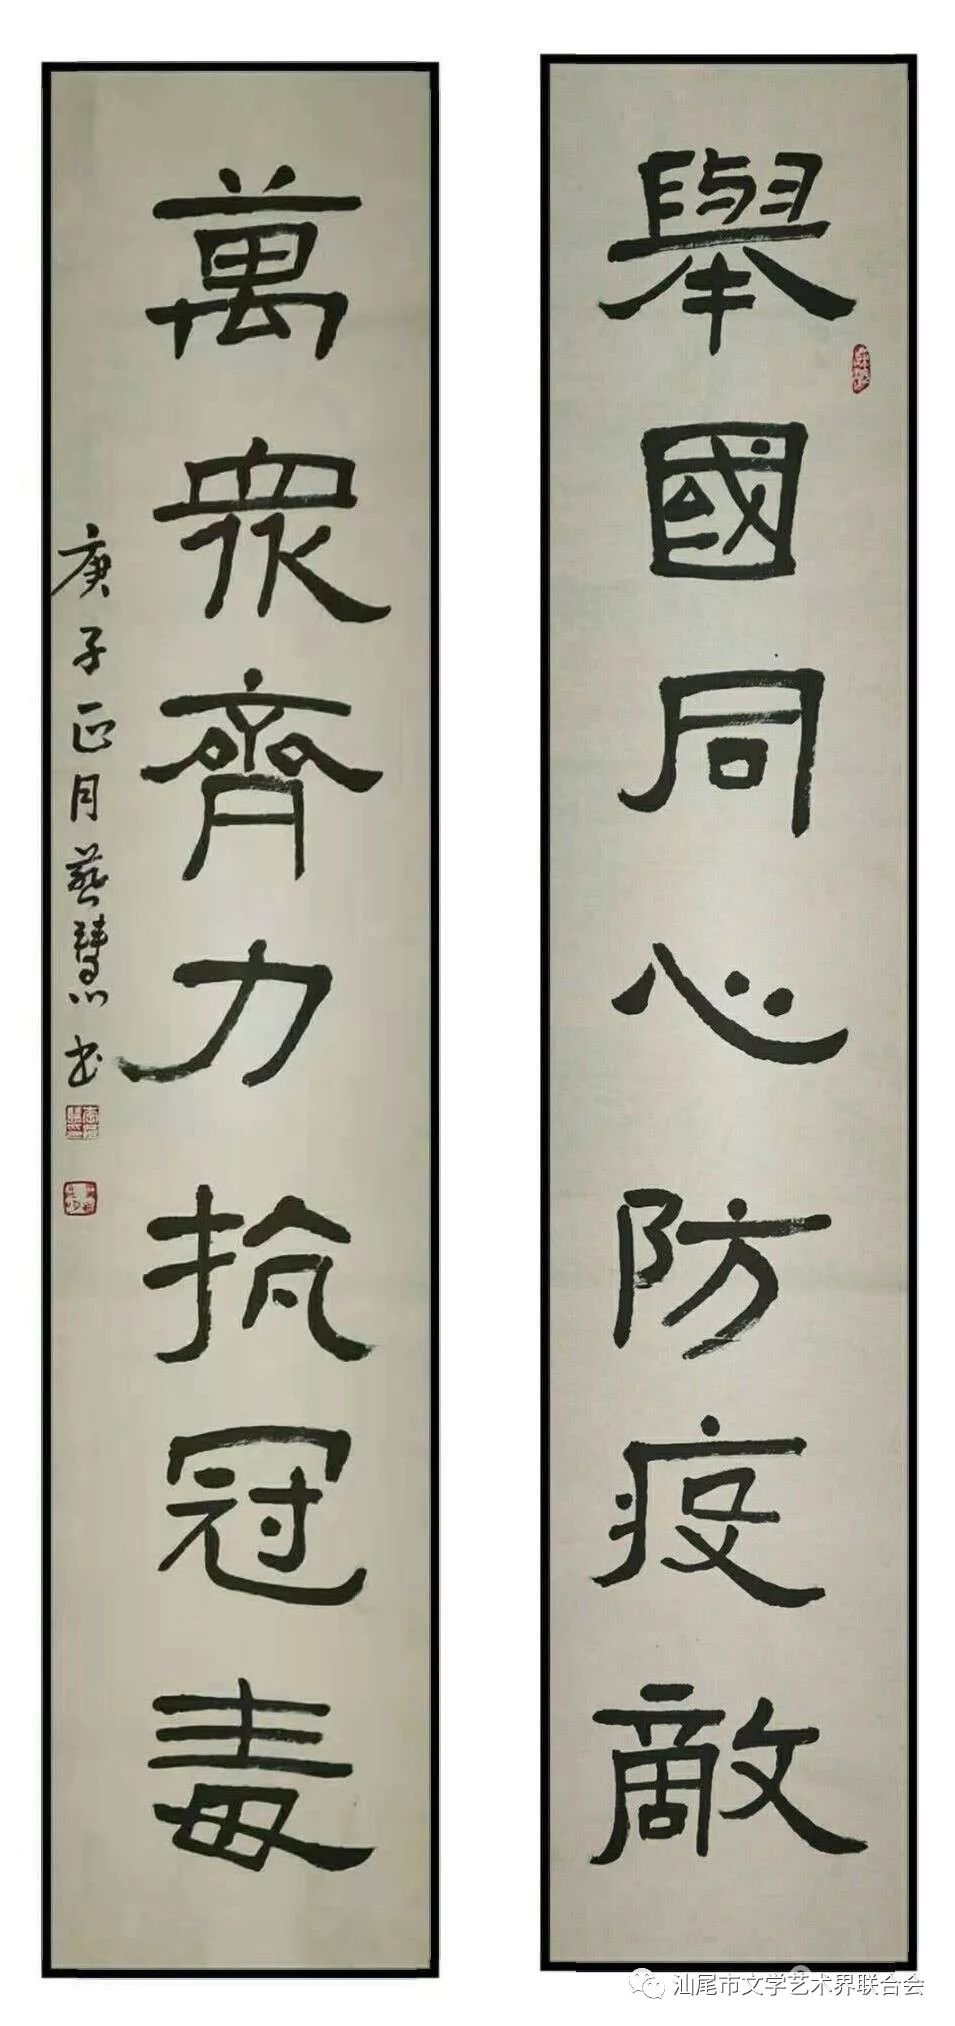 舉國同心防疫敵
萬衆齊力抗冠毒
庚子正月蔡慧書
汕尾市文学艺术界联合会